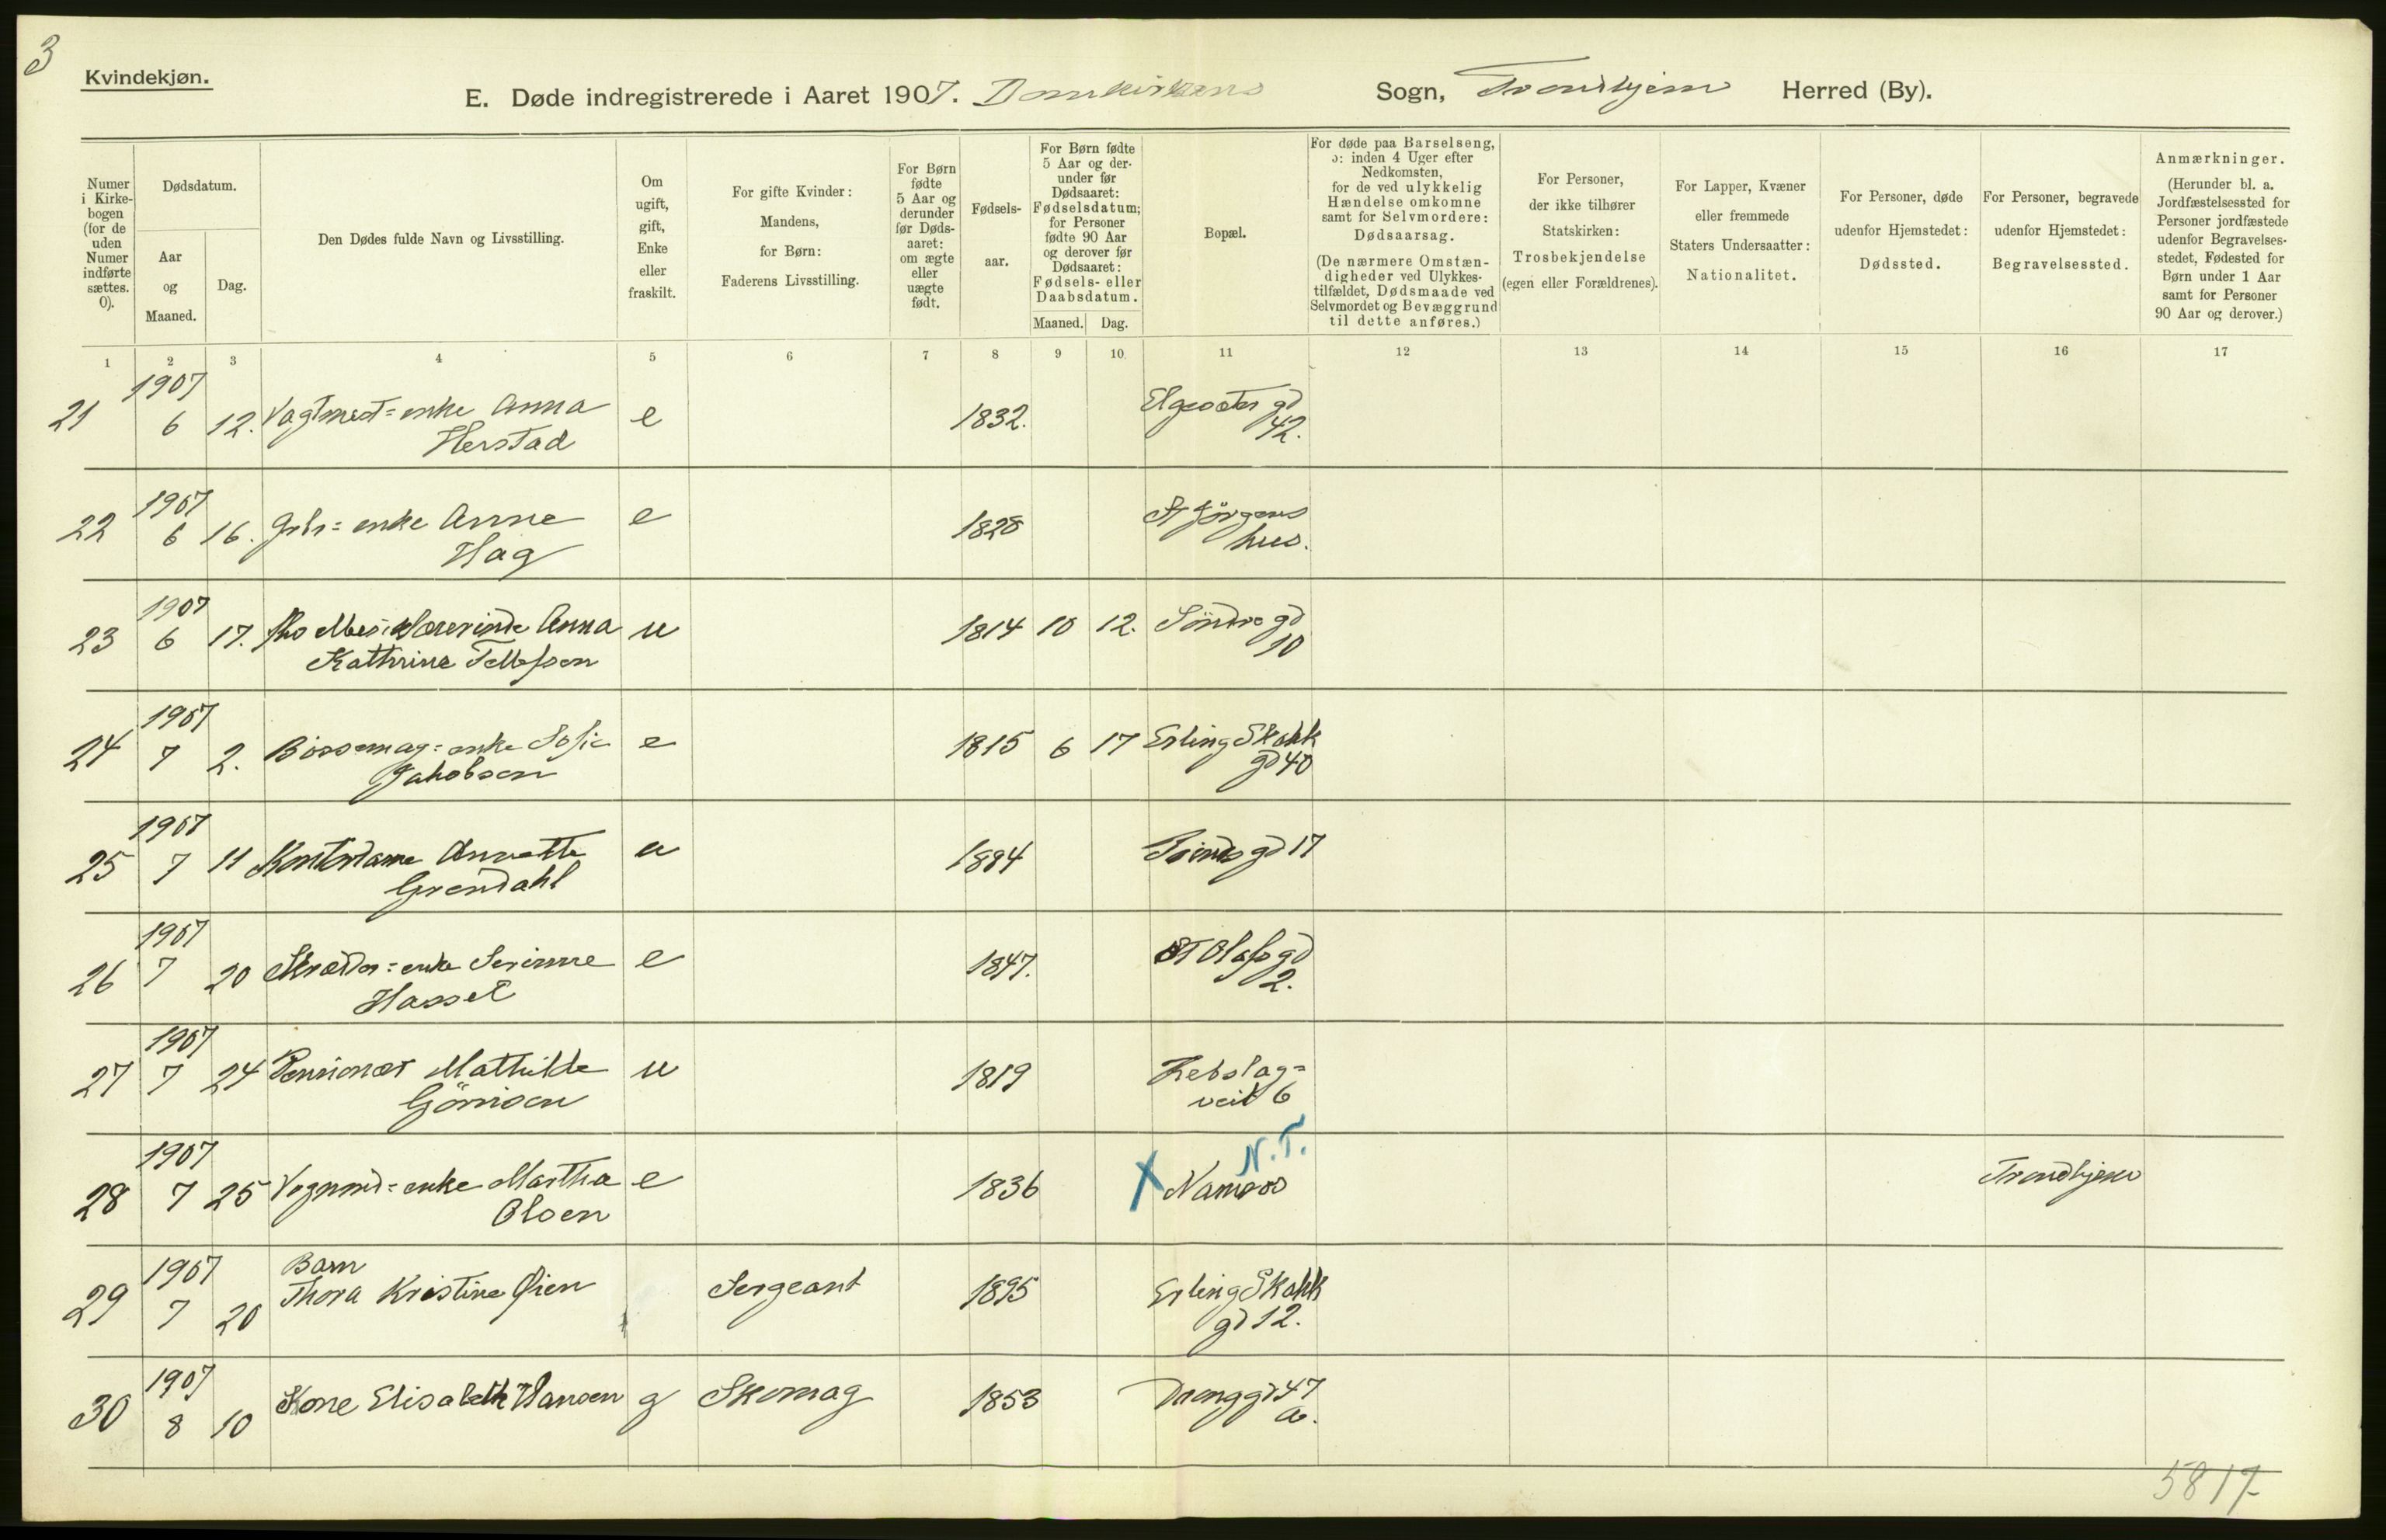 3
Kvindekjøn.
E. Døde indregistrerede i Aaret 1907. Domkirkens Sogn, Trondhjem Herred (By).
Numer i Kirkebogen (for de uden Numer indførte sættes. 0).
Dødsdatum.
Aar og Maaned.
Dag.
Den Dødes fulde Navn og Livsstilling.
Om ugift, gift, Enke eller fraskilt.
For gifte Kvinder: Mandens, for Børn: Faderens Livsstilling.
For Børn fødte 5 Aar og derunder før Dødsaaret: om ægte eller uægte født.
Fødselsaar.
For Børn fødte 5 Aar og derunder før Dødsaaret: Fødselsdatum; for Personer fødte 90 Aar og derover før Dødsaaret: Fødsels- eller Daabsdatum.
Maaned. Dag.
Bopæl.
For døde paa Barselseng, ɔ: inden 4 Uger efter Nedkomsten, for de ved ulykkelig Hændelse omkomne samt for Selvmordere: Dødsaarsag. (De nærmere Omstændigheder ved Ulykkestilfældet, Dødsmaade ved Selvmordet og Bevæggrund til dette anføres.)
For Personer, der ikke tilhører Statskirken: Trosbekjendelse (egen eller Forældrenes).
For Lapper, Kvæner eller fremmede Staters Undersaatter: Nationalitet.
For Personer, døde udenfor Hjemstedet: Dødssted.
For Personer, begravede udenfor Hjemstedet: Begravelsessted.
Anmærkninger. (Herunder bl. a. Jordfæstelsessted for Personer jordfæstede udenfor Begravelsesstedet, Fødested for Børn under 1 Aar samt for Personer 90 Aar og derover.)
1 2 3 4 5 6 7 8 9 10. 11 12 13 14 15 16 17
1907
21 6 12. Vagtmest=enke Anna e 1832. Elgesæter gd
Herstad 42.
1907
22 6 16. Gbr=enke Anne e 1828 St Jörgens
Hag hus.
1907
23 6 17. Anna u 1814 10 12. Söndre gd
Kathrine Tellefsen 10
1907
24 7 2. Bössemag=enke Sofie e 1815 6 17 Erling Skakk
Jakobsen gd 40
1907
25 7 11 Kontordame Annette u 1884 gd 17
Grendahl
1907
26 7 20 Skrædder=enke Serinne e 1847. St Olafs gd
Hassel 2.
1907
27 7 24 Pensionær Mathilde u 1819 Rebslag=
Görrisen veit 6
N.T.
1907
28 7 25 Vognmd=enke Martha e 1836 X Namsos Trondhjem
Olsen
1907 Barn
29 7 20 Thora Kristine Øien Sergeant 1895 Erling Skakk
gd 12.
1907
30 8 10 Kone Elisabeth Hansen g Skomag 1853 Dronggd 47
a.
5817